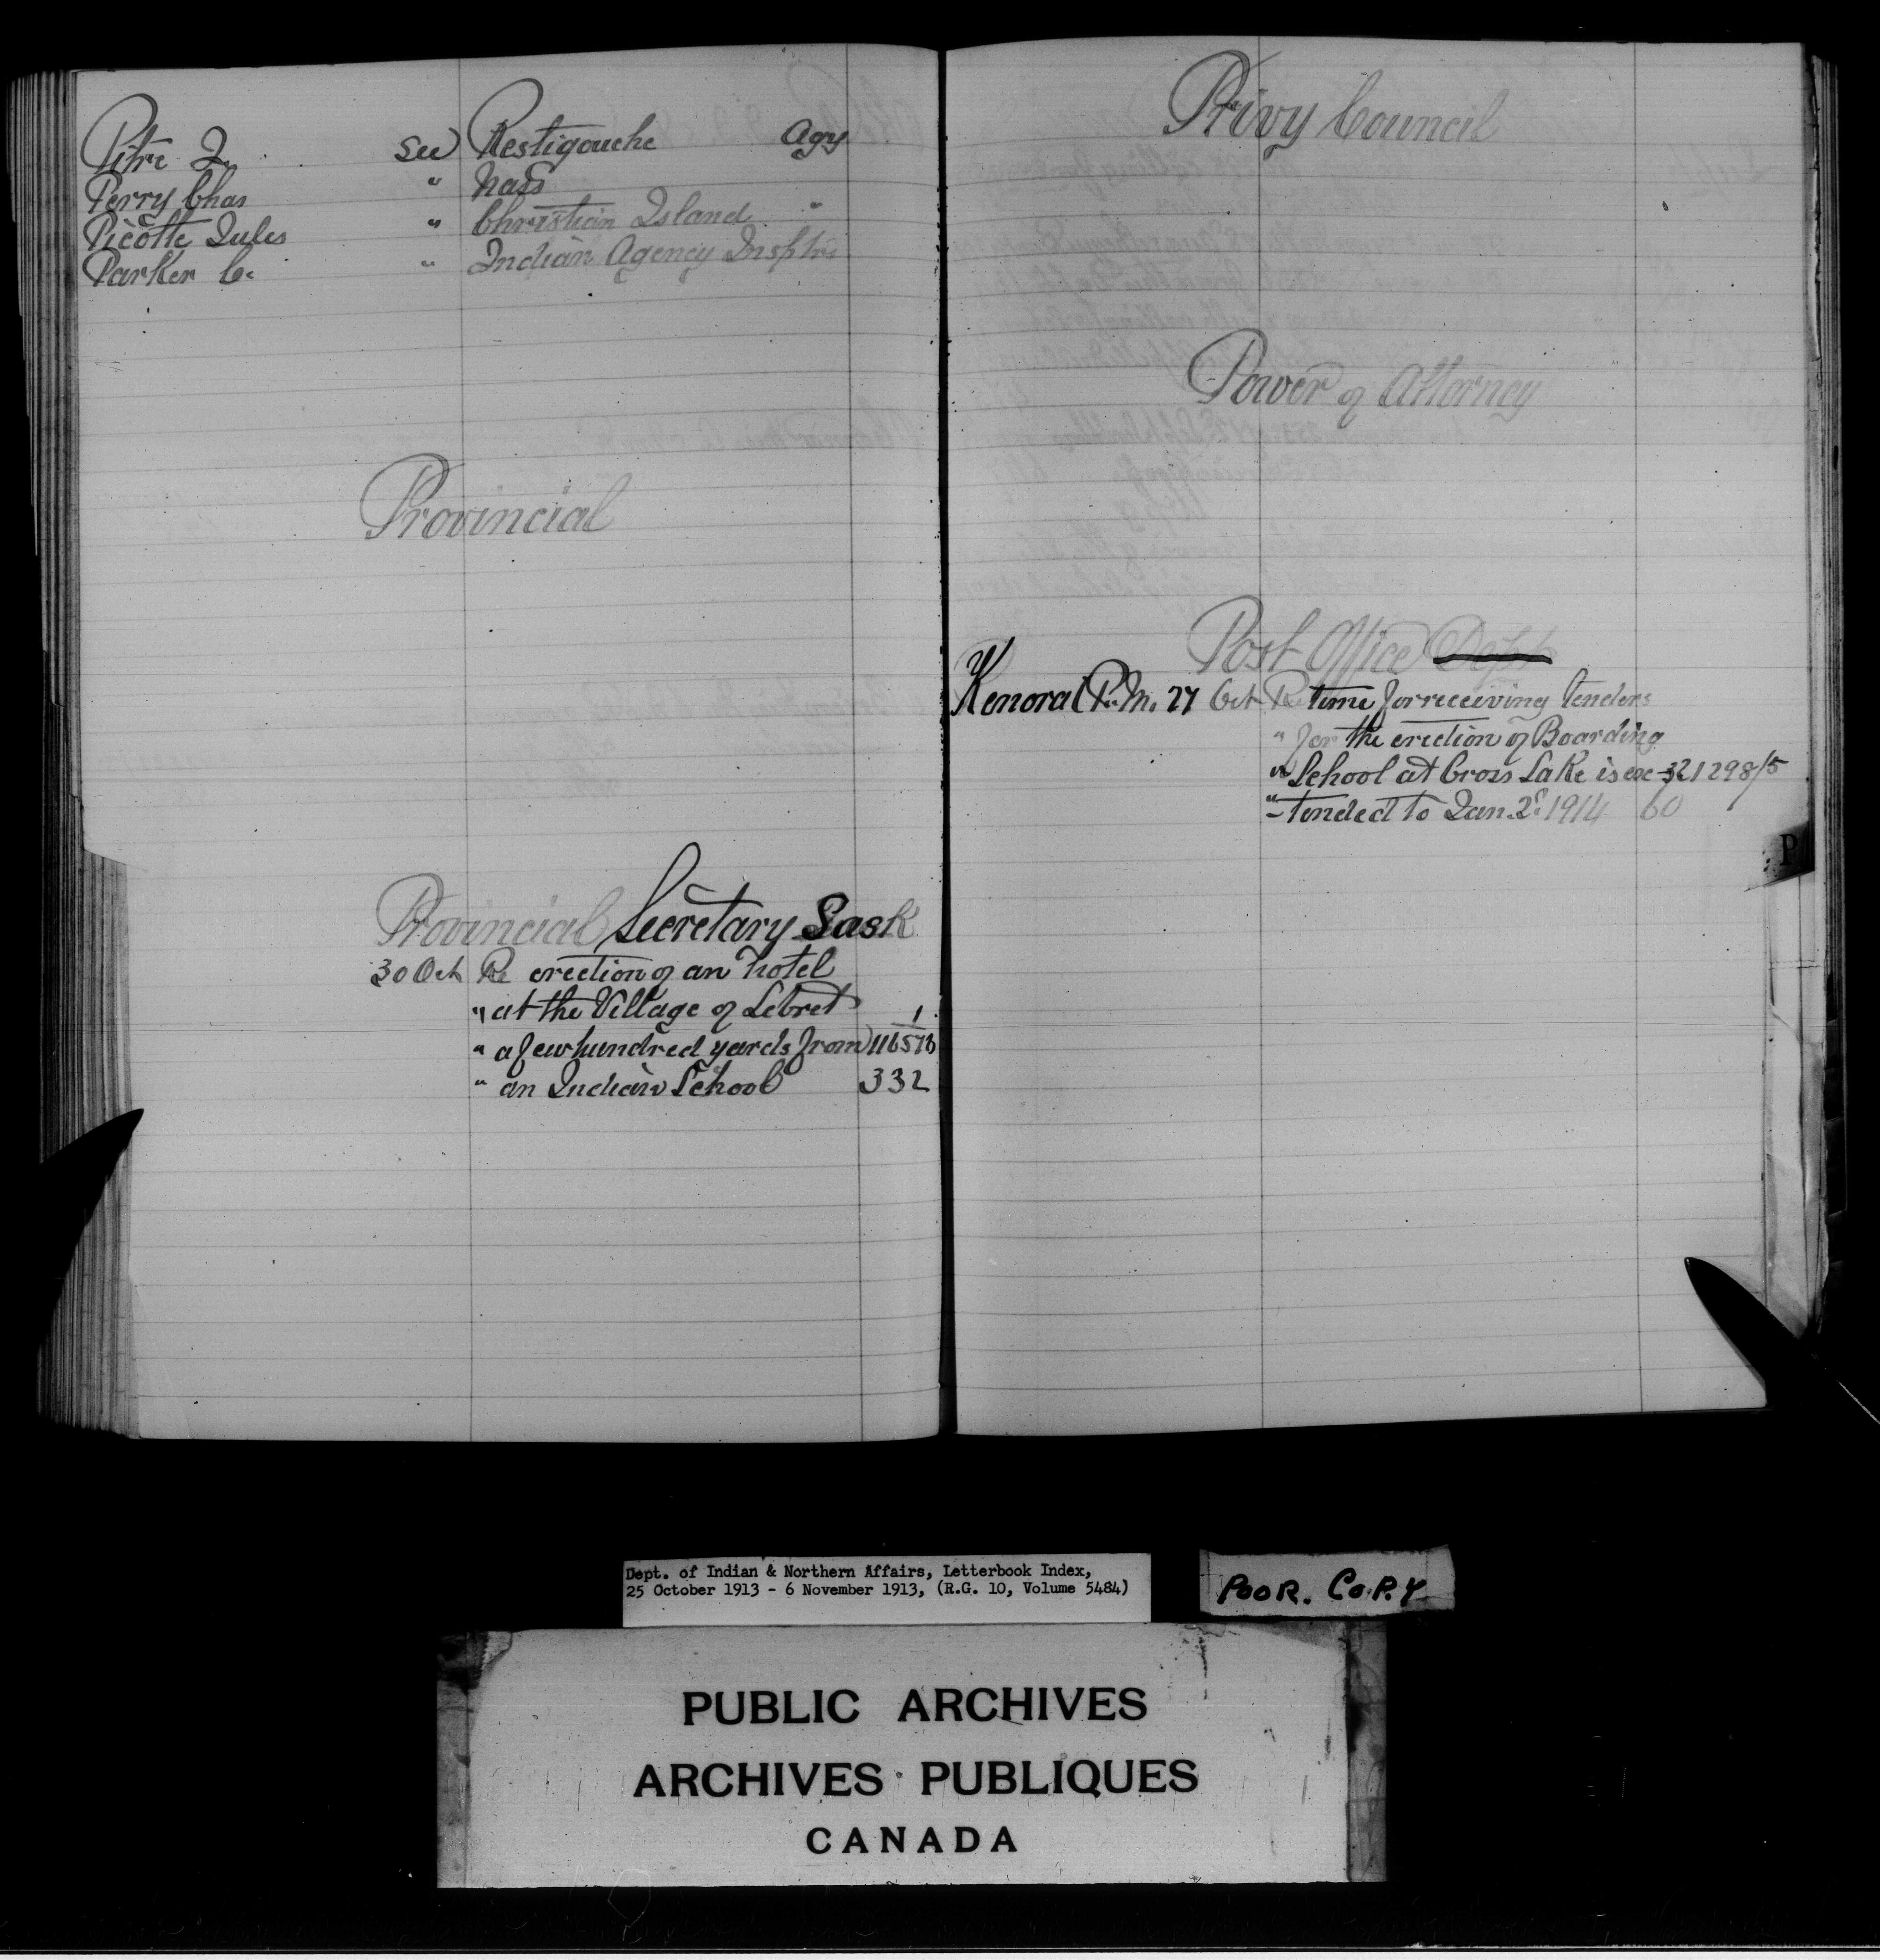 Pitre J. See Restigouche Agy
Perry Chas " Nass
Picotte Jules " Christian Island "
Parker C. " Indian Agency Insptrs
Provincial
Provincial Secretary Sask
30 Oct Re erection of an hotel
" at the Village of Lebret
" a few hundred yards from 116576/1
" an Indian School 332
Privy Council
Power of Attorney
Post Office Dept
Kenora P.M. 27 Oct Re time for receiving tenders
" for the erection of Boarding
" School at Cross Lake is ex- 321298/5
" -tended to Jan. 2d 1914 60
P
Dept. of Indian & Northern Affairs, Letterbook Index,
25 October 1913 - 6 November 1913, (R.G. 10, Volume 5484)
POOR. COPY
PUBLIC ARCHIVES
ARCHIVES PUBLIQUES
CANADA